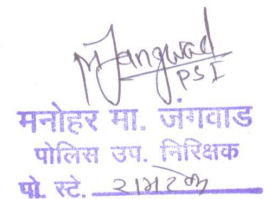 MJangwad
PSI
मनोहर मा. जंगवाड
पोलिस उप. निरिक्षक
पो. स्टे. रामटेक